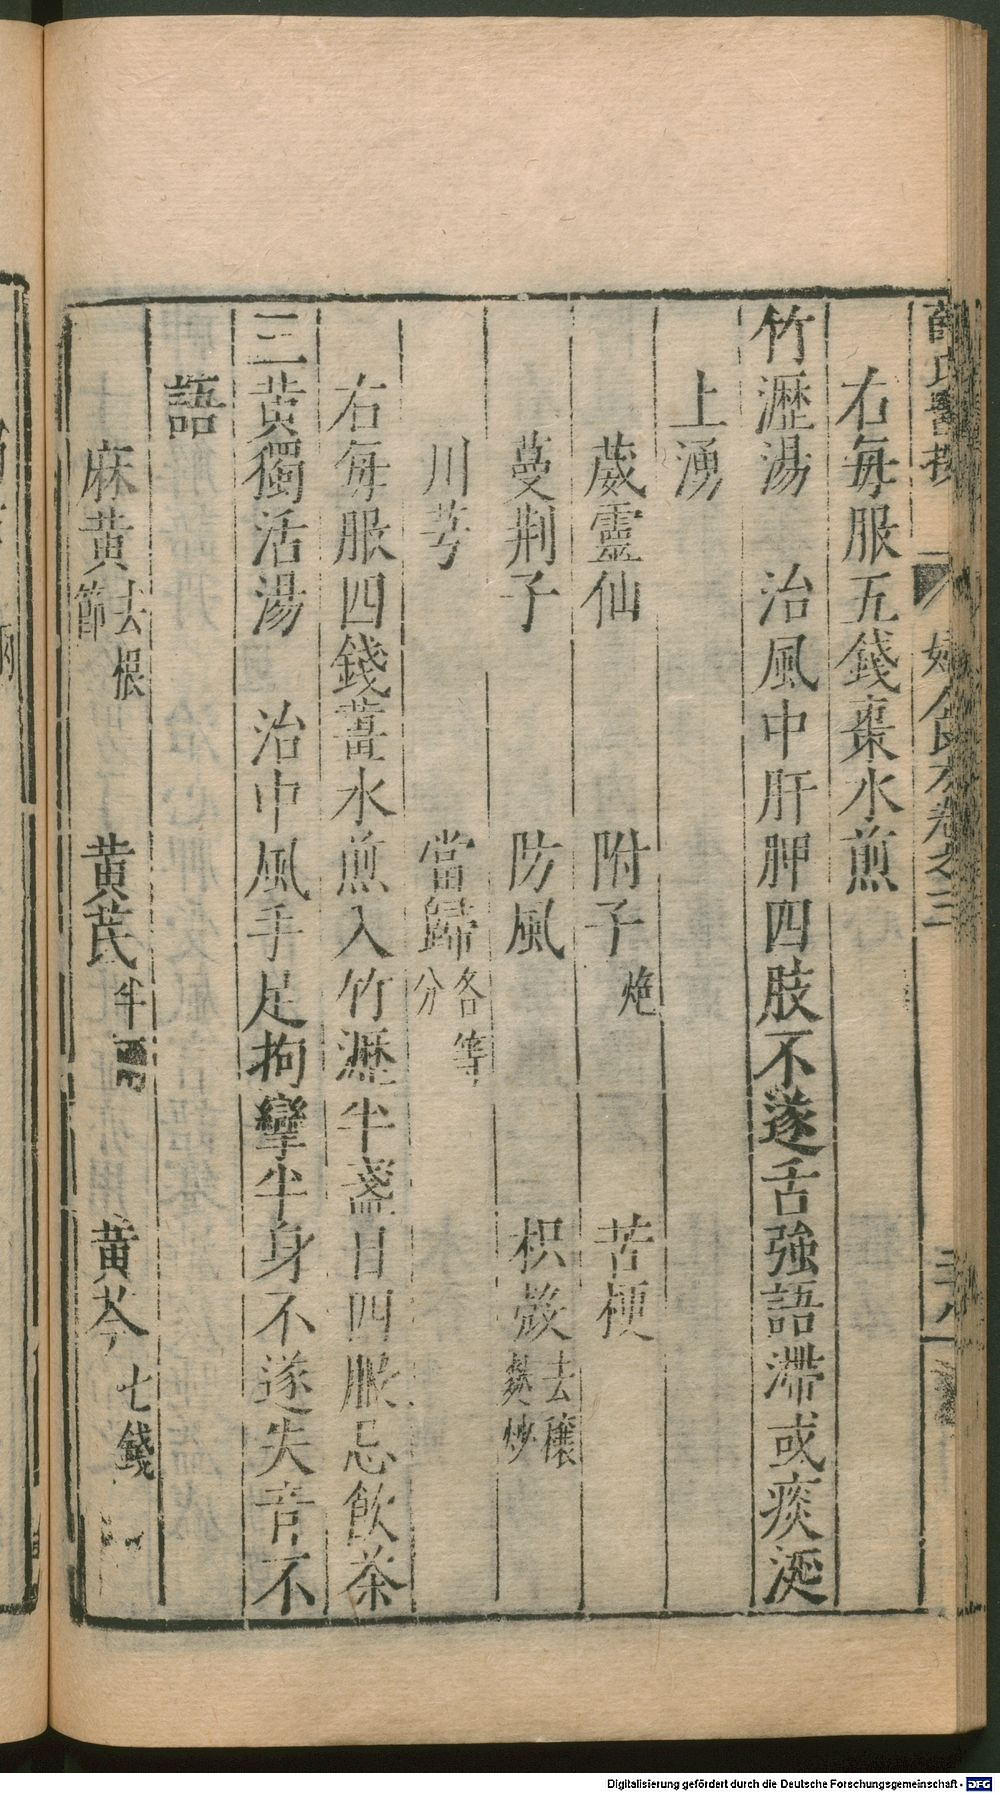 右每服五錢棗水煎
竹瀝湯　治風中肝脾四肢不遂舌強語滯或痰涎
上湧
葳靈仙　附子炮　苦梗
蔓荆子　防風　枳殼去穰麩炒
川芎　當歸各等分
右每服四錢薑水煎入竹瀝半盞日四服忌飲茶
三黃獨活湯　治中風手足拘攣半身不遂失音不
語
麻黃去根節　黃芪半兩　黃芩七錢
Digitalisierung gefördert durch die Deutsche Forschungsgemeinschaft - DFG